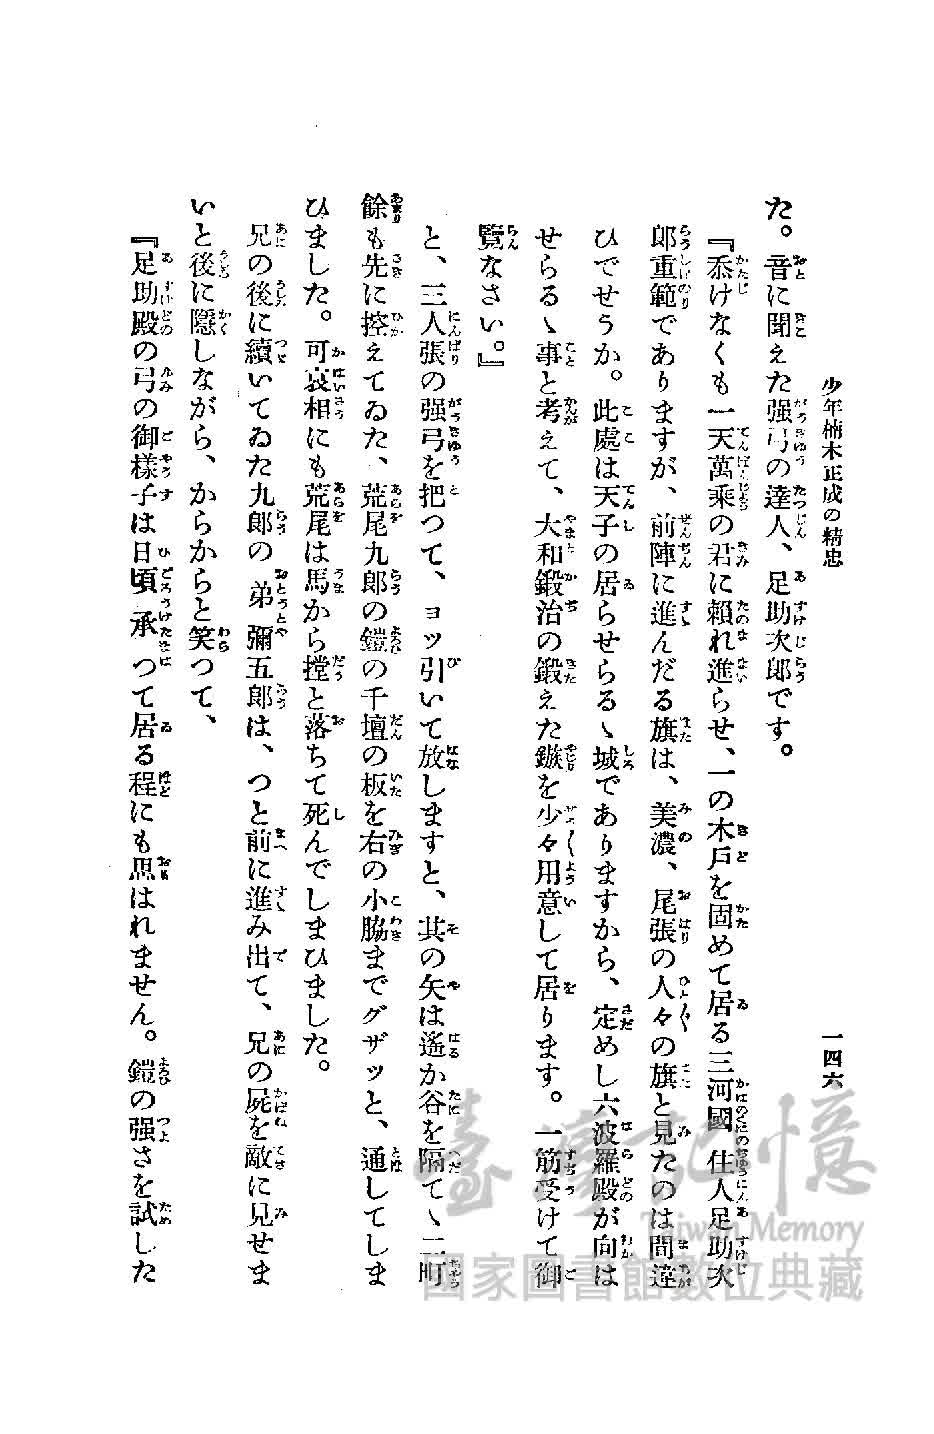 少年楠木正成の精忠
一四六
た。音に聞えた强弓の達人、足助次郎です。
『忝けなくも一天萬乘の君に賴れ進らせ、一の木戸を固めて居る三河國住人足助次
郎重範でありますが、前陣に進んだる旗は、美濃、尾張の人々の旗と見たのは間違
ひでせうか。此處は天子の居らせらるゝ城でありますから、定めし六波羅殿が向は
せらるゝ事と考えて、大和鍛治の鍛えた鏃を少々用意して居ります。一筋受けて御
覽なさい。』
と、三人張の强弓を把つて、ヨッ引いて放しますと、其の矢は遙か谷を隔てゝ二町
餘も先に控えてゐた、荒尾九郎の鎧の千壇の板を右の小脇までグザッと、通してしま
ひました。可哀相にも荒尾は馬から摚と落ちて死んでしまひました。
兄の後に續いてゐた九郎の弟彌五郎は、つと前に進み出て、兄の屍を敵に見せま
いと後に隱しながら、からからと笑つて、
『足助殿の弓の御樣子は日頃承つて居る程にも思はれません。鎧の强さを試した
臺灣記憶
Taiwan Memory
國家圖書館數位典藏